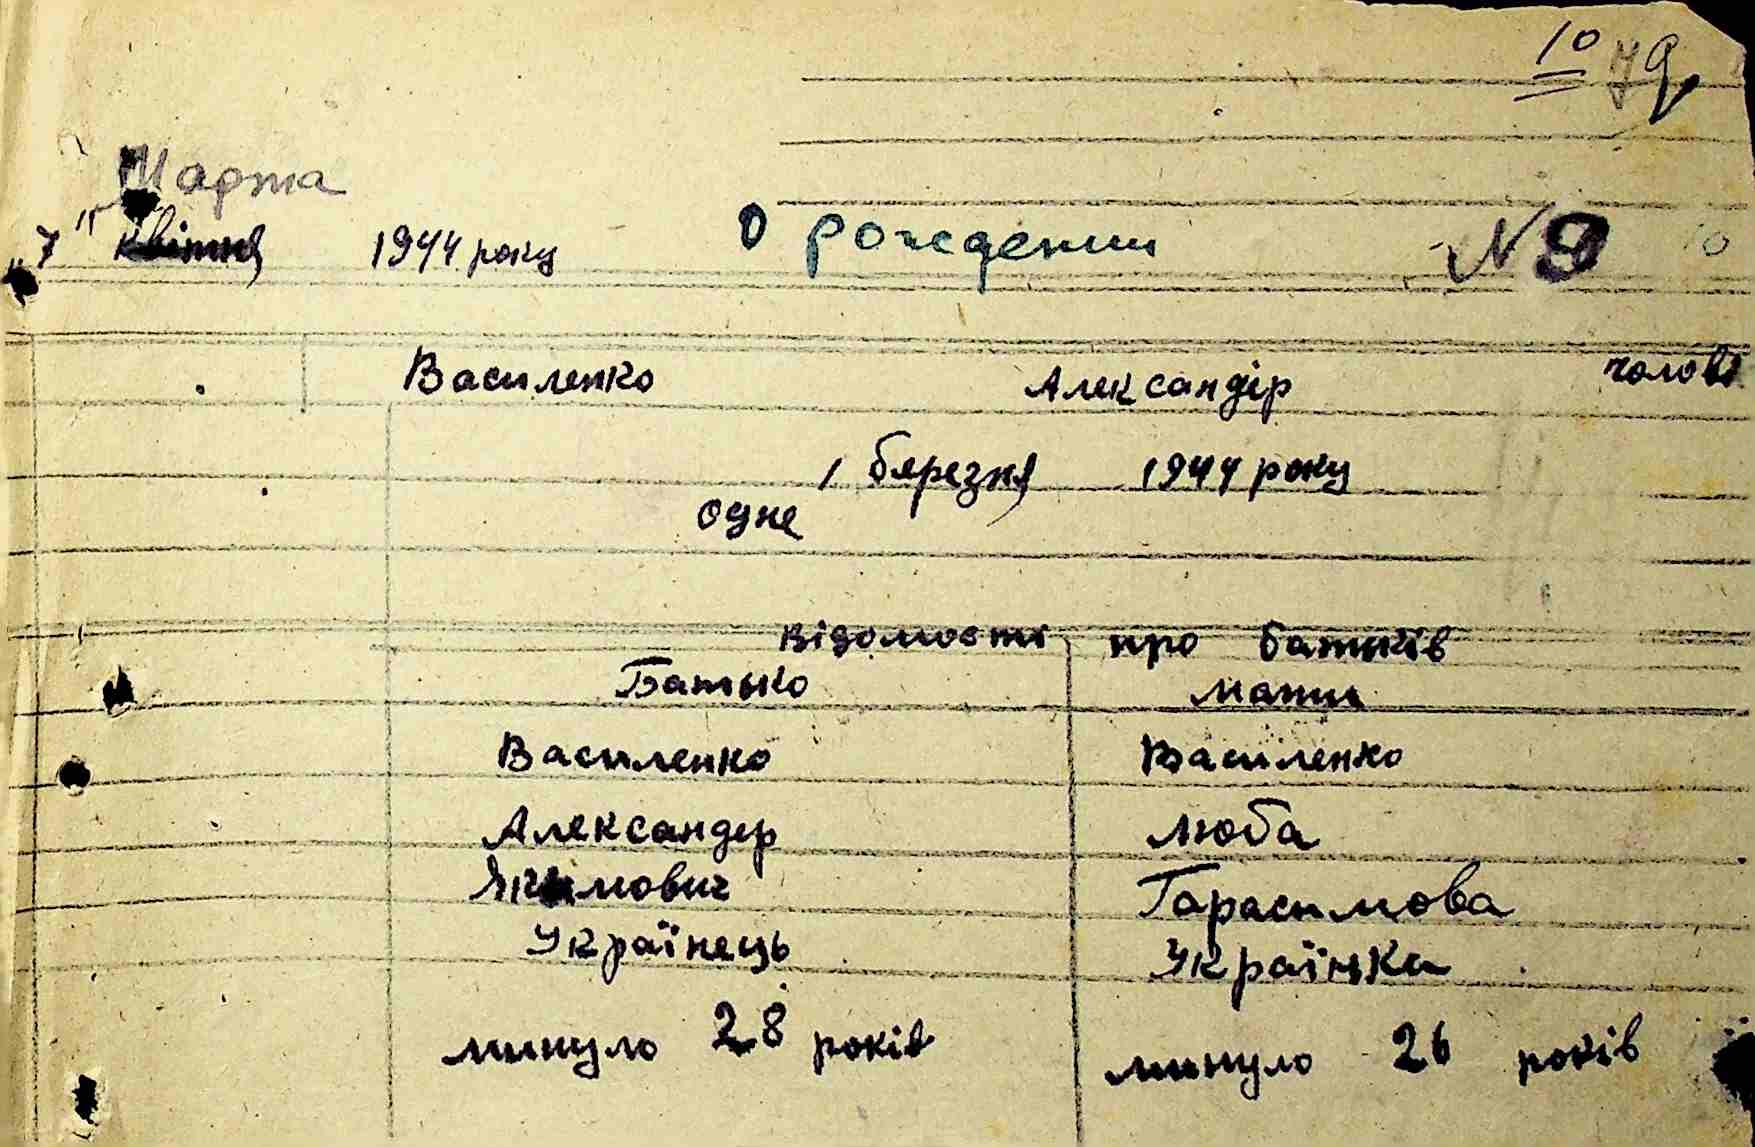 10 79
Марта
"7" квітня 1944 року О рождении N 9 10
Василенко Александір чолові
1 березня 1944 року
одне
Відомости про батьків
Батько мати
Василенко Василенко
Александер Люба
Якимович Гарасимова
Українець Українька
минуло 28 років минуло 26 років